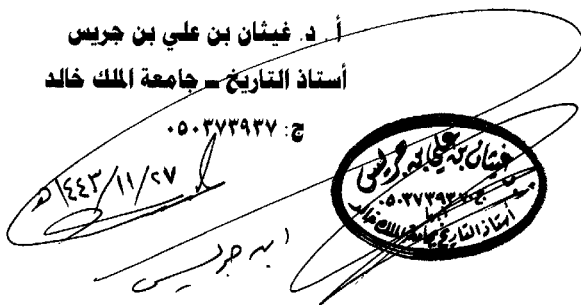 أ. د. غيثان بن علي بن جريس
أستاذ التاريخ ــ جامعة الملك خالد
ج: ٠٥٠٣٧٣٩٣٧
١٤٤٣/١١/٢٧هـ
ابن جريس
غيثان بن علي بن جريس
أستاذ التاريخ بجامعة الملك خالد